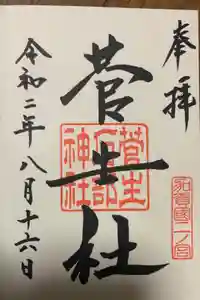 奉拝
加賀國一ノ宮
菅生社
菅生石部神社
令和二年八月十六日